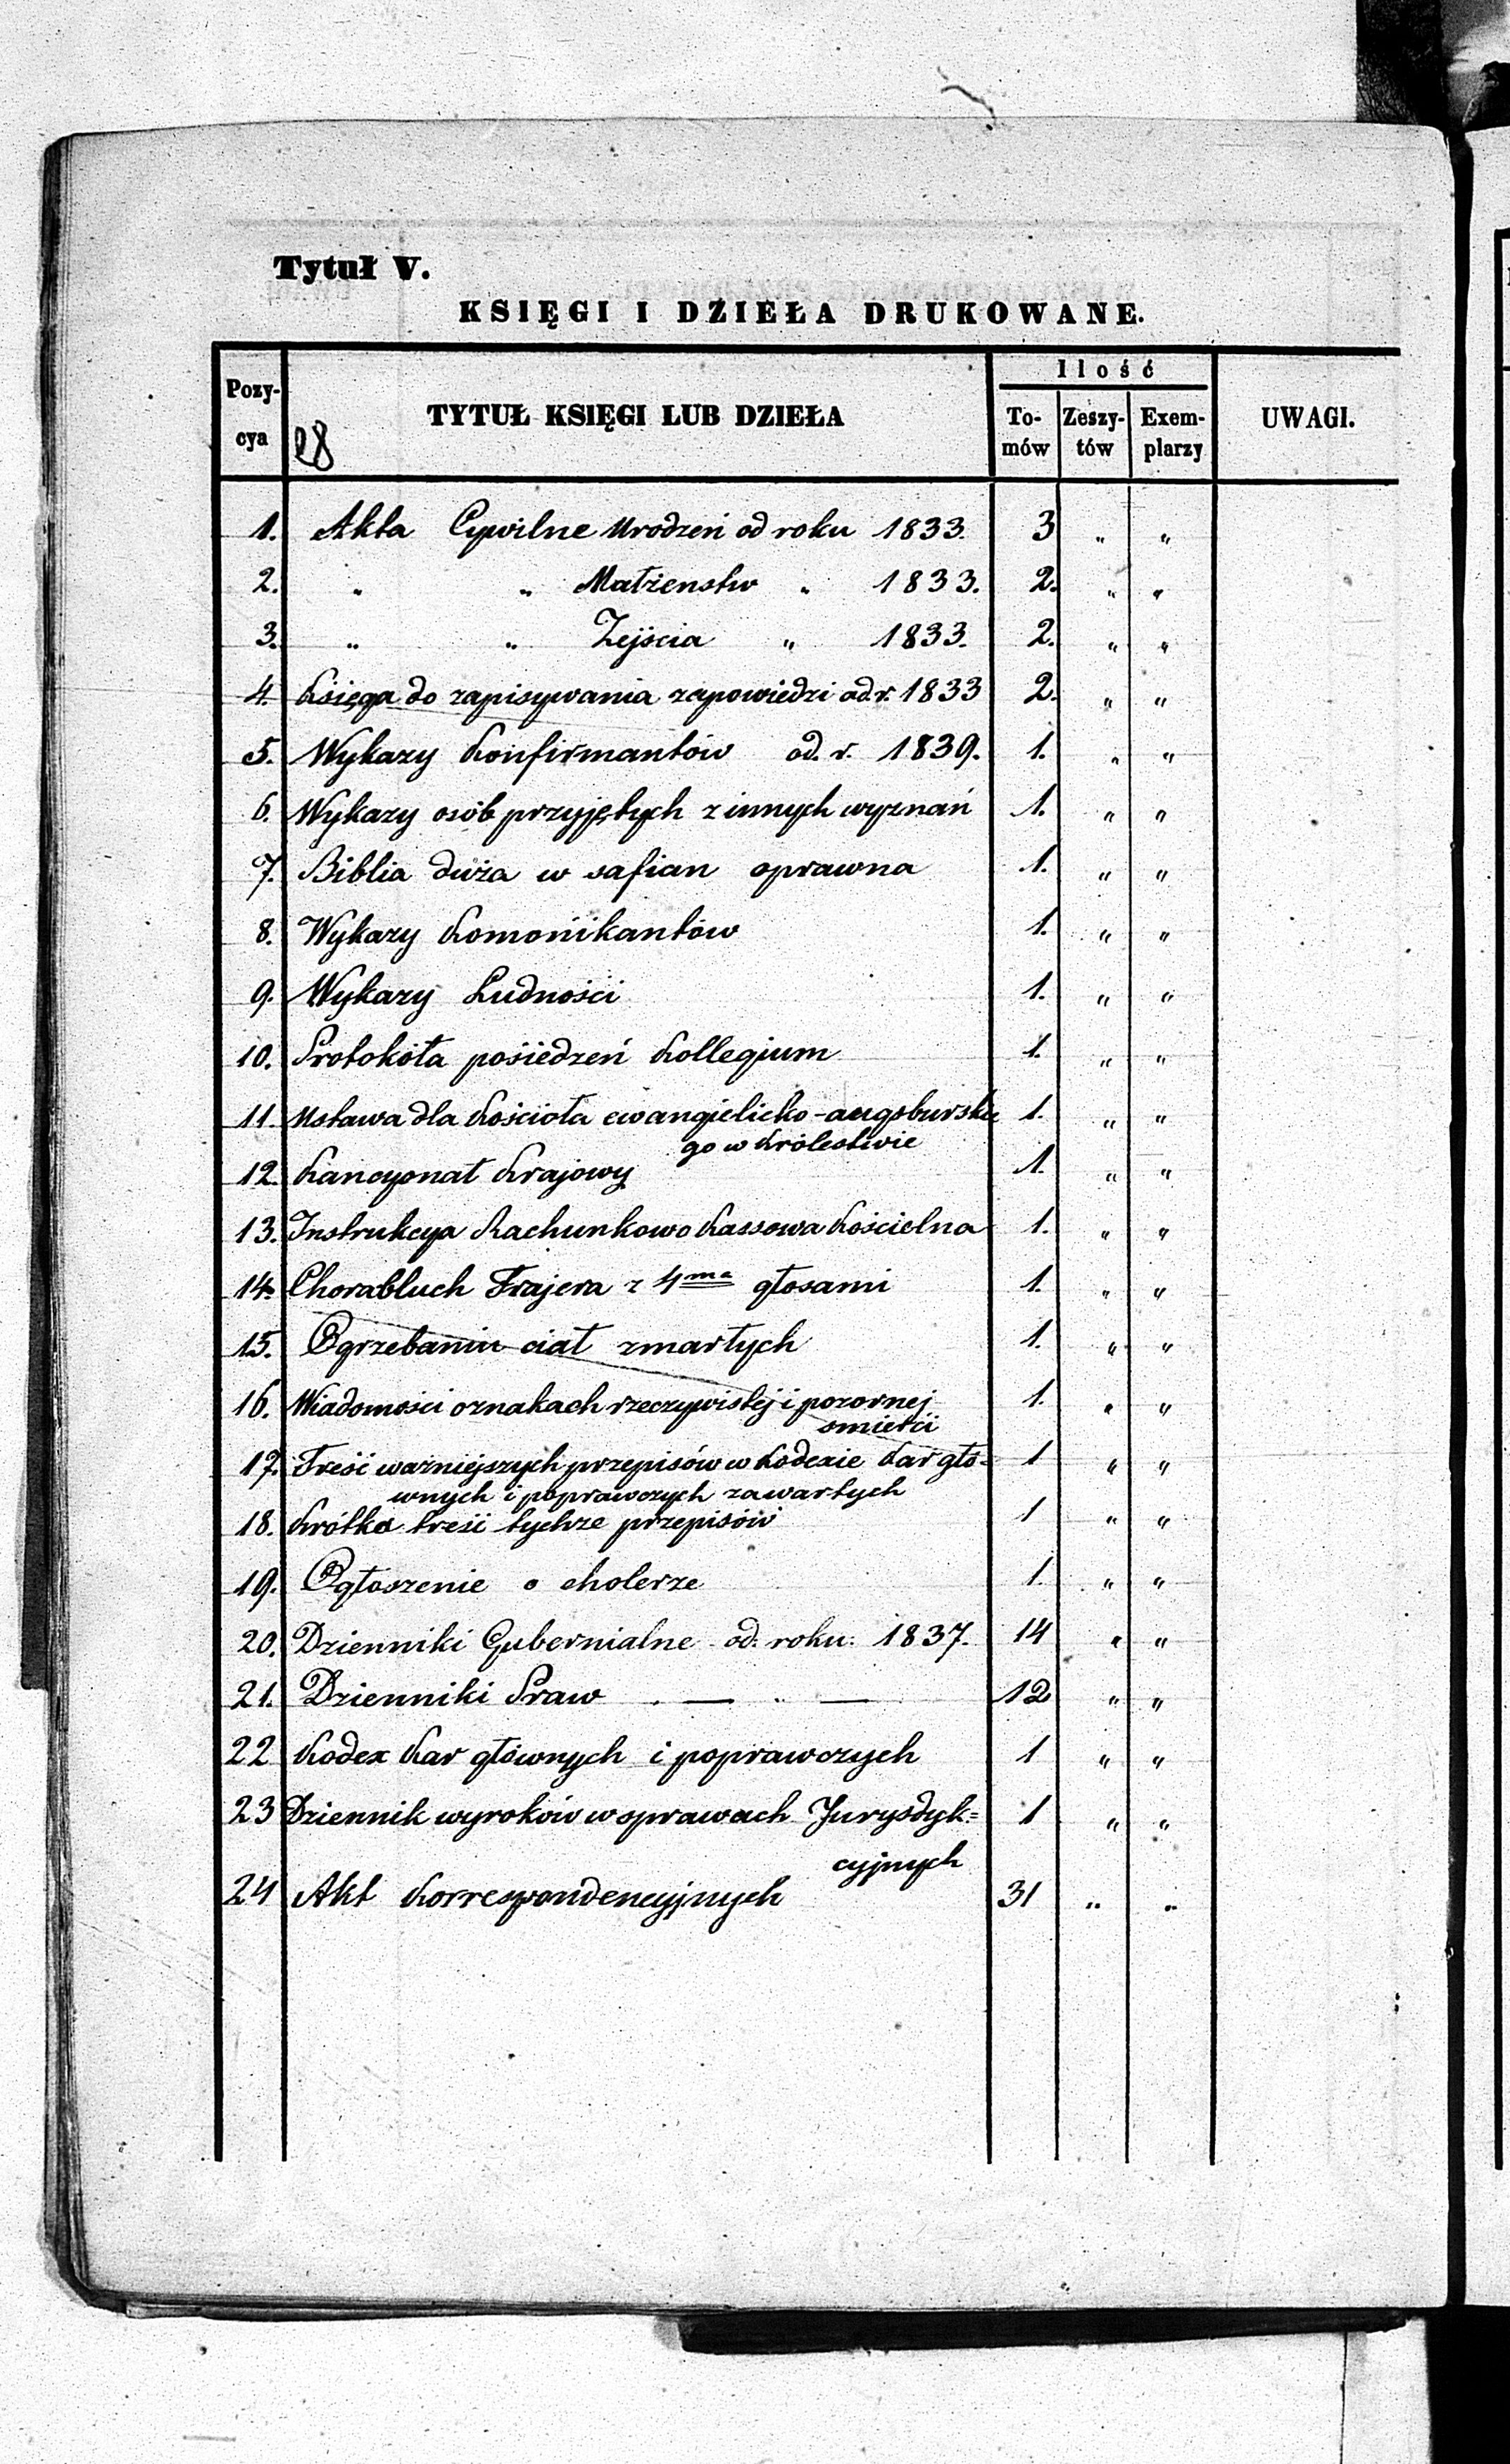 Tytuł V.
KSIĘGI I DZIEŁA DRUKOWANE.
Pozy-
cya
28
TYTUŁ KSIĘGI LUB DZIEŁA
Ilość
To-
mów
Zeszy-
tów
Exem-
plarzy
UWAGI.
1. Akta Cywilne Urodzeń od roku 1833. 3 " "
2. " " Małżenstw " 1833. 2. " "
3. " " Zejścia " 1833. 2. " "
4. Księga do zapisywania zapowiedzi od r. 1833 2. " "
5. Wykazy Konfirmantów od. r. 1839. 1. " "
6. Wykazy osób przyjętych z innych wyznań 1. " "
7. Biblia duża w safian oprawna 1. " "
8. Wykazy Komonikantów 1. " "
9. Wykazy Ludności 1. " "
10. Protokóła posiedzeń Kollegium 1. " "
11. Ustawa dla Kościoła ewangielicko-augsburskie 1. " "
go w Królestwie
12. Kancyonał Krajowy 1. " "
13. Instrukcya Rachunkowo Kassowa Kościelna 1. " "
14. Chorabluch Frajera z 4ma głosami 1. " "
15. Ogrzebaniu ciał zmarłych 1. " "
16. Wiadomości oznakach rzeczywistej i pozornej 1. " "
smierci
17. Treść ważniejszych przepisów w Kodexie Kar głó= 1 " "
wnych i poprawczych zawartych
18. Krótka treść tychze przepisów 1 " "
19. Ogłoszenie o cholerze 1. " "
20. Dzienniki Gubernialne od. roku. 1837. 14 " "
21. Dzienniki Praw . — " — 12 " "
22 Kodex Kar głównych i poprawczych 1 " "
23 Dziennik wyroków w sprawach Jurysdyk= 1 " "
cyjnych
24 Akt Korrespondencyjnych 31 " "